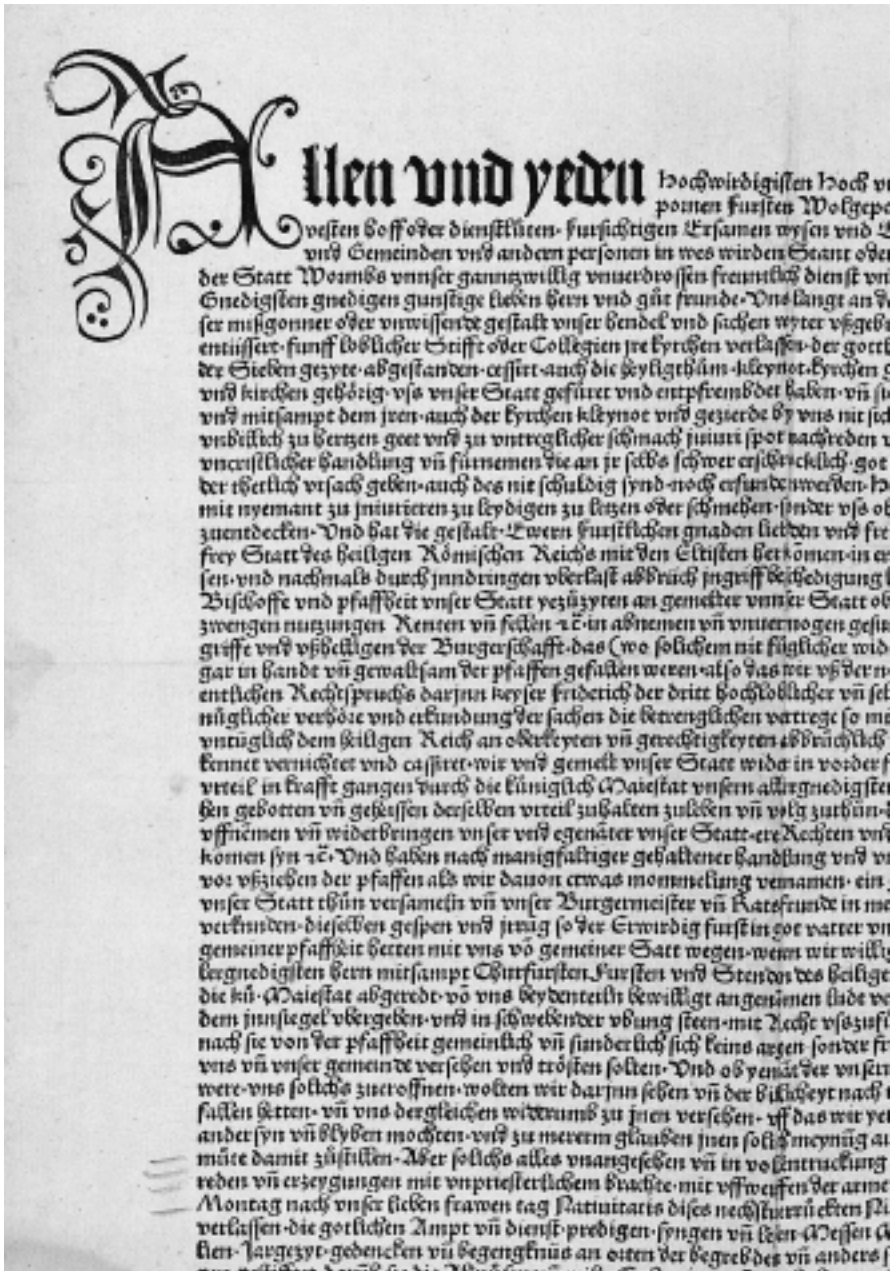 Allen vnd yeden Hochwirdigisten Hoch
pornen Fursten
vesten hoff oder dienstluten· fursichtigen Ersamen wysen vnd
vnd Gemeinden vnd andern personen in wes wirden Stant oder
der Statt Wormbs vnnser ganntz willig vnuerdrossen freuntlich dienst
Gnedigsten gnedigen gunstige lieben hern vnd gůt frunde· Vns langt an
ser mißgonner oder vnwissende gestalt vnser hendel vnd sachen wyter
entüssert· funff loblicher Stifft oder Collegien jre kyrchen verlassen· der
der Sieben gezyte· abgestanden· cessirt· auch die heyligthům· kleynot· kyrchen
vnd kirchen gehörig· vss vnser Statt gefüret vnd entpfrembdet haben· vn̄
vnd mitsampt dem jren· auch der kyrchen kleynot vnd gezierde by vns nit
vnbillich zu hertzen geet vnd zu vntreglicher schmach iniuri spot nachreden
vncristlicher handlung vn̄ fürnemen die an jr selbs schwer erschrecklich· got
der thetlich vrsach geben· auch des nit schuldig synd· noch erfunden werden·
mit nyemant zu iniurieren zu leydigen zu letzen oder schmehen· sonder vss
zuentdecken· Vnd hat die gestalt· Ewern furstlichen gnaden liebden vnd
frey Statt des heiligen Römischen Reichs mit den Eltisten herkomen· in
sen· vnd nachmals durch jnndringen vberlast abbruch jngriff beschedigung
Bischoffe vnd pfaffheit vnser Statt yezüzyten an gemelter vnnser Statt
zwengen nutzungen Renten vn̄ fellen ⁊c̄· in abnemen vn̄ vnuermogen
griffe vnd vßhelligen der Burgerschafft· das (wo solichem nit füglicher
gar in handt vn̄ gewaltsam der pfaffen gefallen weren· also das wir vß der
entlichen Rechtspruchs darjnn keyser Friderich der dritt hochloblicher vn̄
nüglicher verhöre vnd erkundung der sachen die betrenglichen vertrege so
vntüglich dem heiligen Reich an oberkeyten vn̄ gerechtigkeyten abbrüchlich
kennet vernichtet vnd cassiret· wir vnd gemelt vnser Statt wids in vorder
vrteil in krafft gangen durch die küniglich Maiestat vnsern allergnedigsten
hen gebotten vn̄ geheissen derselben vrteil zuhalten zuleben vn̄ volg zuthün·
vffnemen vn̄ widerbringen vnser vnd egenāter vnser Statt· ere Rechten
komen syn ⁊c̄· Vnd haben nach manigfaltiger gehaltener handlung vnd
vor vßziehen der pfaffen als wir dauon etwas mommelung vernamen· ein
vnser Statt thün versameln vn̄ vnser Burgermeister vn̄ Ratsfrunde in
verkunden· dieselben gespen vnd jrrüg so der Erwirdig furst in got vatter
gemeiner pfaffheit hetten mit vns vō gemeiner Satt wegen· wenn wir
lergnedigsten hern mitsampt Churfursten Fursten vnd Stenden des
die kü· Maiestat abgeredt· vō vns beyden teiln bewilligt angenůmen ludt
dem jnnsiegel vbergeben· vnd in schwebender vbung steen· mit Recht
nach sie von der pfaffheit gemeinlich vn̄ sunderlich sich keins argen· sonder
vns vn̄ vnser gemeinde versehen vnd trösten solten· Vnd ob yemāt der vnsern
were· vns solichs zueroffnen· wolten wir darjnn sehen vn̄ der billicheyt nach
fallen hetten· vn̄ vns dergleichen widerumb zu jnen versehen· vff das wir
ander syn vn̄ blyben mochten· vnd zu mererm glauben jnen solich meynüg
müte damit züstillen· Aber solichs alles vnangesehen vn̄ in volentruckung
reden vn̄ erzeygungen mit vnpriesterlichem brachte· mit vffwerffen der
Montag nach vnser lieben frawen tag Natiuitatis dises nechstuerrückten
verlassen· die gotlichen Ampt vn̄ dienst· predigen· syngen vn̄ lesen· Messen
lien· Jargezyt· gedencken vn̄ begengknüs an orten der begrebdes vn̄ anders